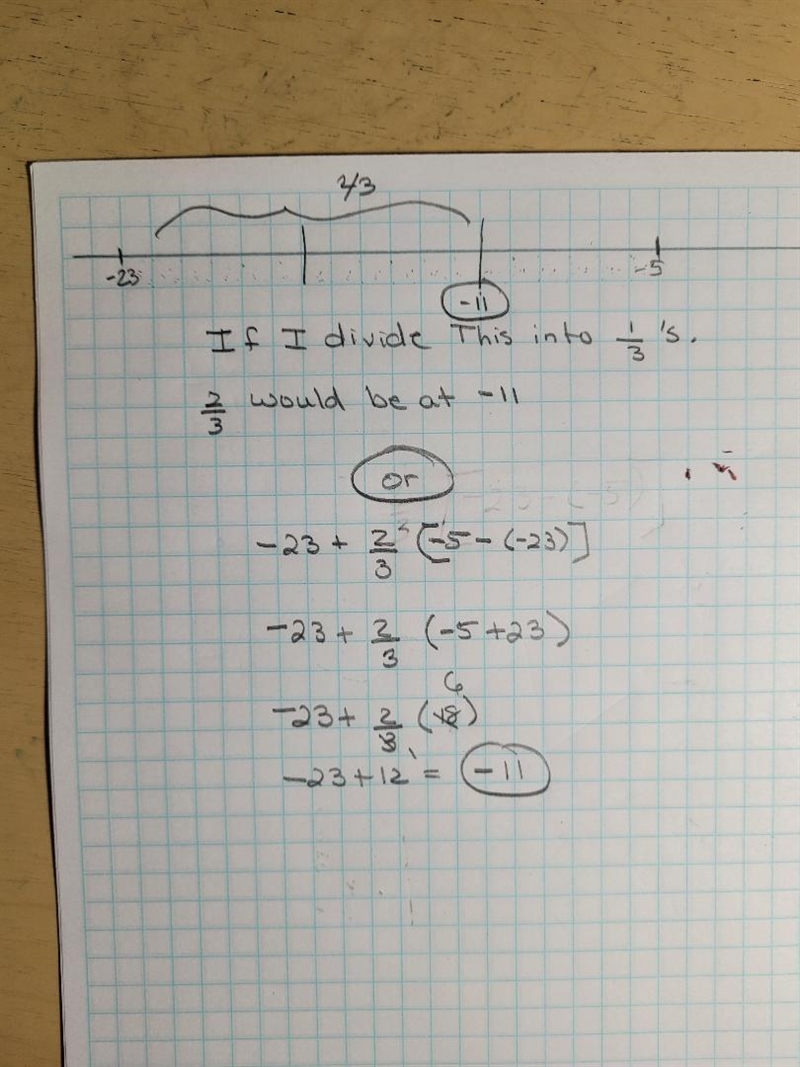 2/3
-23 -5
-11
If I divide This into 1/3 's.
2/3 would be at -11
or
-23 + 2/3 [-5 - (-23)]
-23 + 2/3 (-5 + 23)
6
-23 + 2/3 (18)
1
-23 + 12 = -11